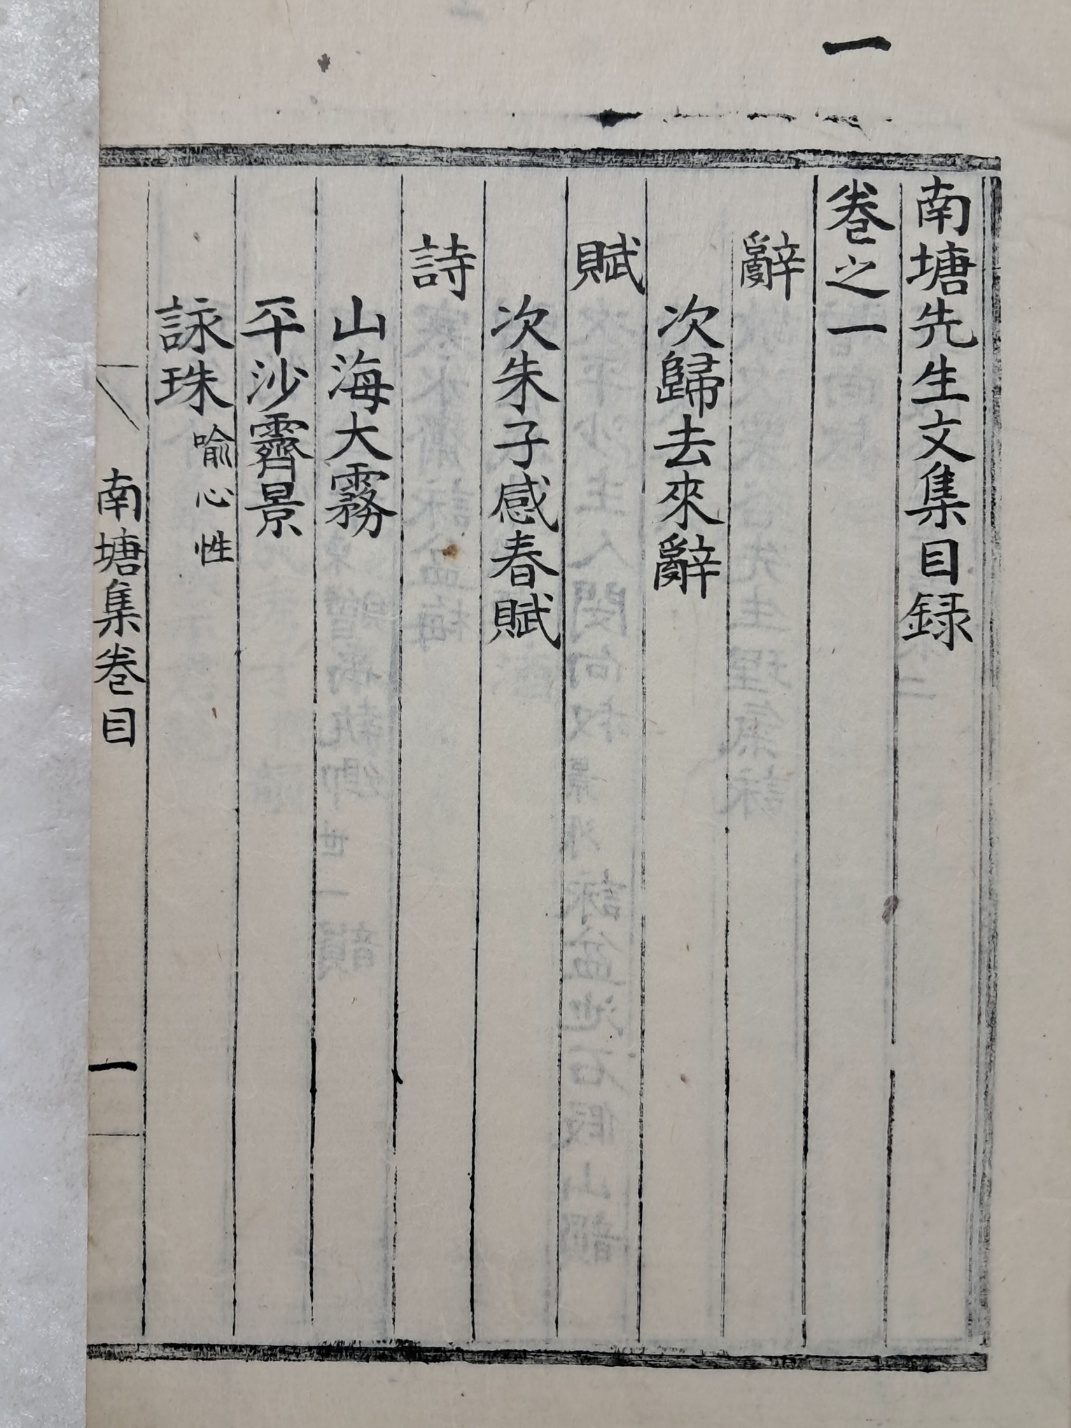 一
南塘先生文集目録
卷之一
辭
次歸去來辭
賦
次朱子感春賦
詩
山海大霧
平沙霽景
詠珠喻心性
南塘集卷目
一